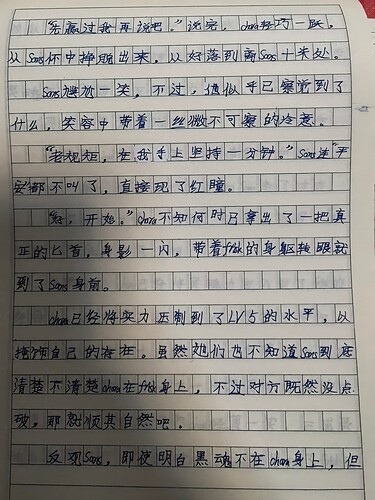 “先赢过我再说吧。”说完，chara轻巧一跃，
从Sans怀中挣脱出来，从好落到离Sans十米处。
Sans尴尬一笑，不过，他似乎已察觉到了
什么，笑容中带着一丝微不可察的冷意。
“老规矩，在我手上坚持一分钟。”Sans连“平
安”都不叫了，直接现了红瞳。
“好，开始。”chara不知何时已拿出了一把真
正的匕首，身影一闪，带着frisk的身躯转眼就
到了Sans身前。
chara已经将实力压制到了LV5的水平，以
掩饰自己的存在。虽然她们也不知道Sans到底
清楚不清楚chara在frisk身上，不过对方既然没点
破，那就顺其自然吧。
反观Sans，即使明白黑魂不在chara身上，但